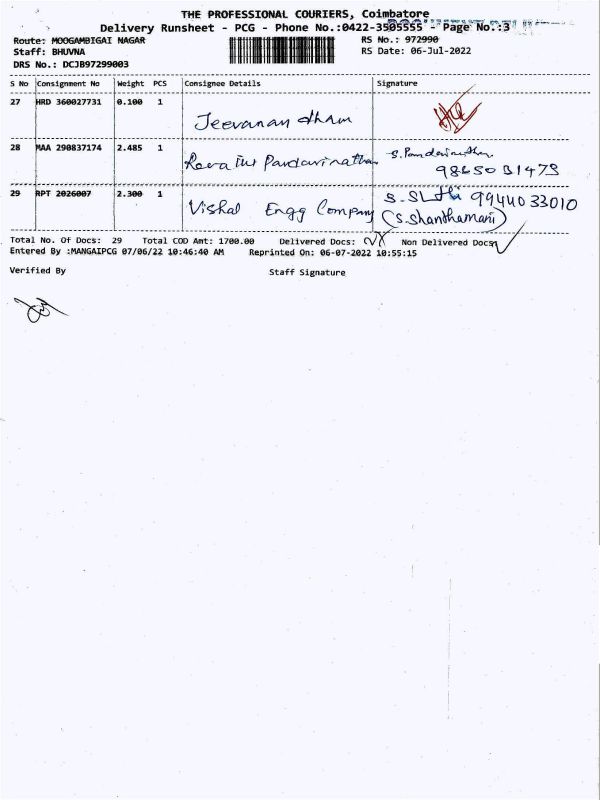 THE PROFESSIONAL COURIERS, Coimbatore
Delivery Runsheet - PCG - Phone No.:0422-3505555 - Page No.:3
Route: MOOGAMBIGAI NAGAR RS No.: 972990
Staff: BHUVNA RS Date: 06-Jul-2022
DRS No.: DCJB97299003
S No Consignment No Weight PCS Consignee Details Signature
27 HRD 360027731 0.100 1
Jeevanandham
28 MAA 290837174 2.485 1
Pandarinathan S. Pandarinathan
98650 31473
29 RPT 2026007 2.300 1
Vishal Engg Company 99440 33010
(S. Shanthamani)
Total No. Of Docs: 29 Total COD Amt: 1700.00 Delivered Docs: Non Delivered Docs:
Entered By :MANGAIPCG 07/06/22 10:46:40 AM Reprinted On: 06-07-2022 10:55:15
Verified By Staff Signature